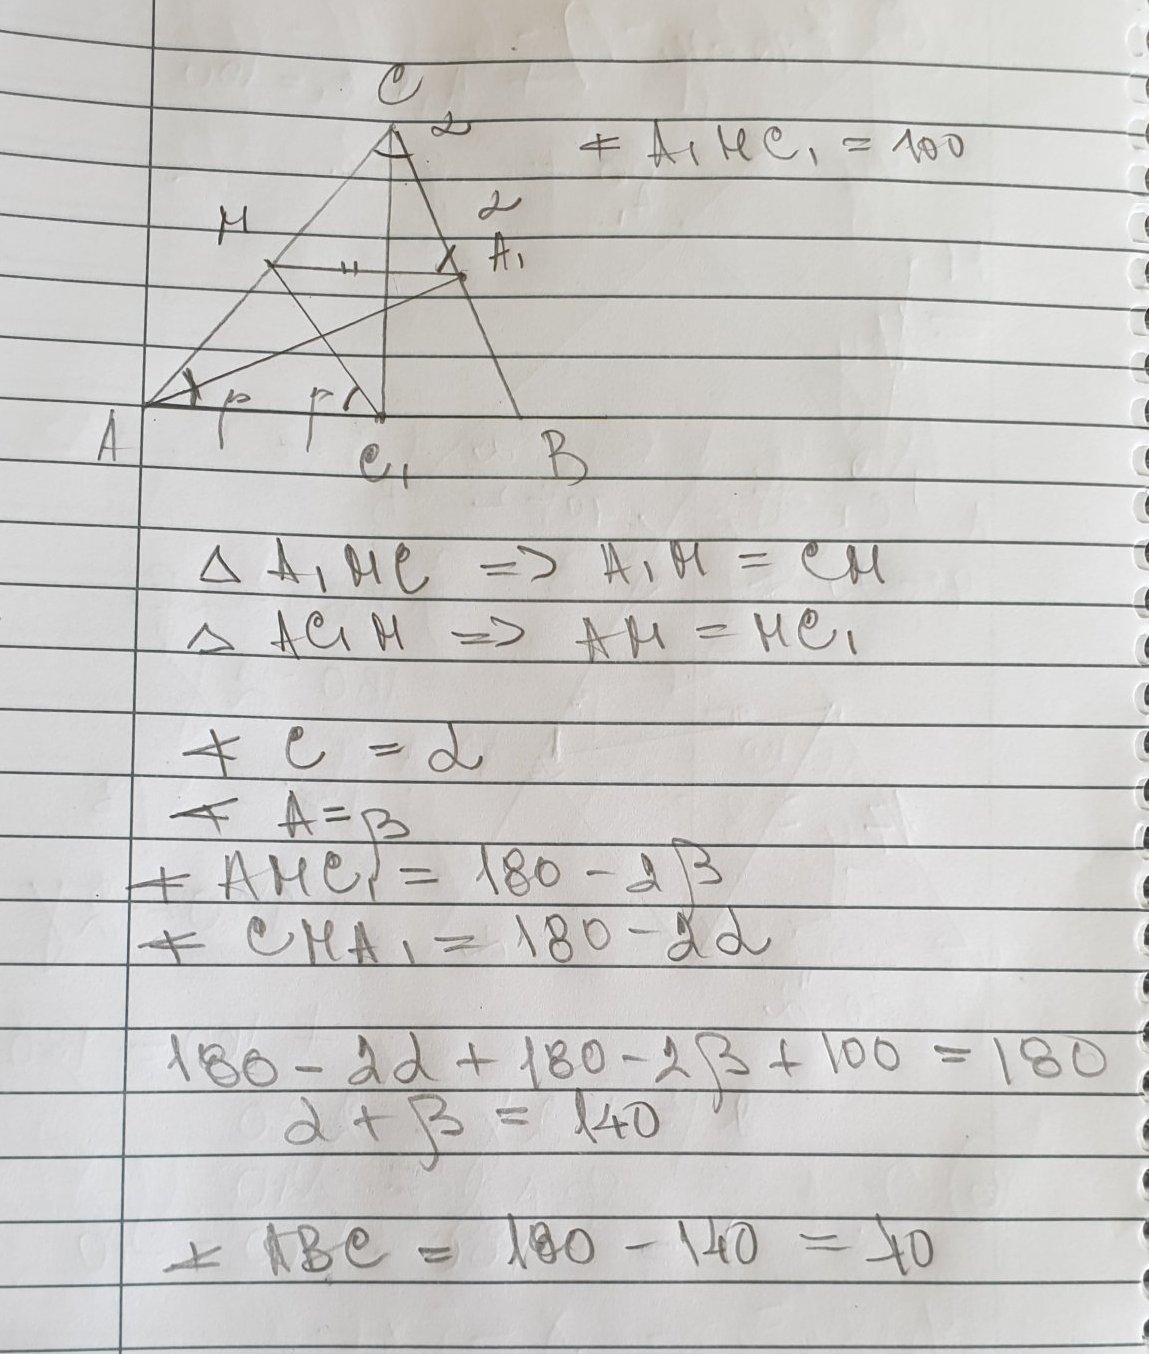 C
α
∢ A₁MC₁ = 100
M
α
A₁
A
β
β
C₁
B
△ A₁MC => A₁M = CM
△ AC₁M => AM = MC₁
∢ C = α
∢ A = β
∢ AMC₁ = 180 - 2β
∢ CMA₁ = 180 - 2α
180 - 2α + 180 - 2β + 100 = 180
α + β = 140
∢ ABC = 180 - 140 = 40